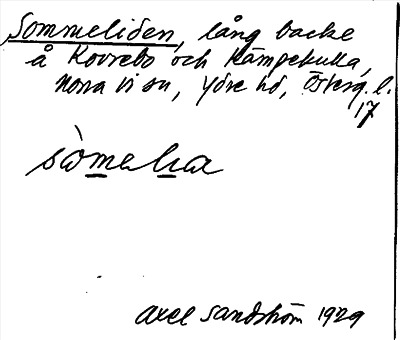 Sommeliden, lång backe
å Korrebo och Kämpekulla,
Norra Vi sn, Ydre hd, Österg. l.
17
Axel Sandström 1929